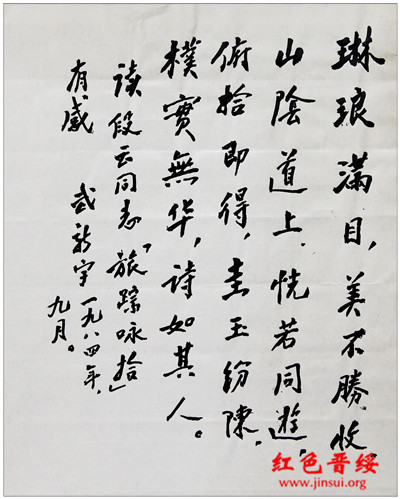 琳琅满目，美不勝收，
山陰道上，恍若同遊，
俯拾即得，圭玉纷陳，
樸實無华，诗如其人。
读段云同志「旅踪咏拾」
有感 武新宇 一九八四年，
九月。
红色晋绥
www.jinsui.org